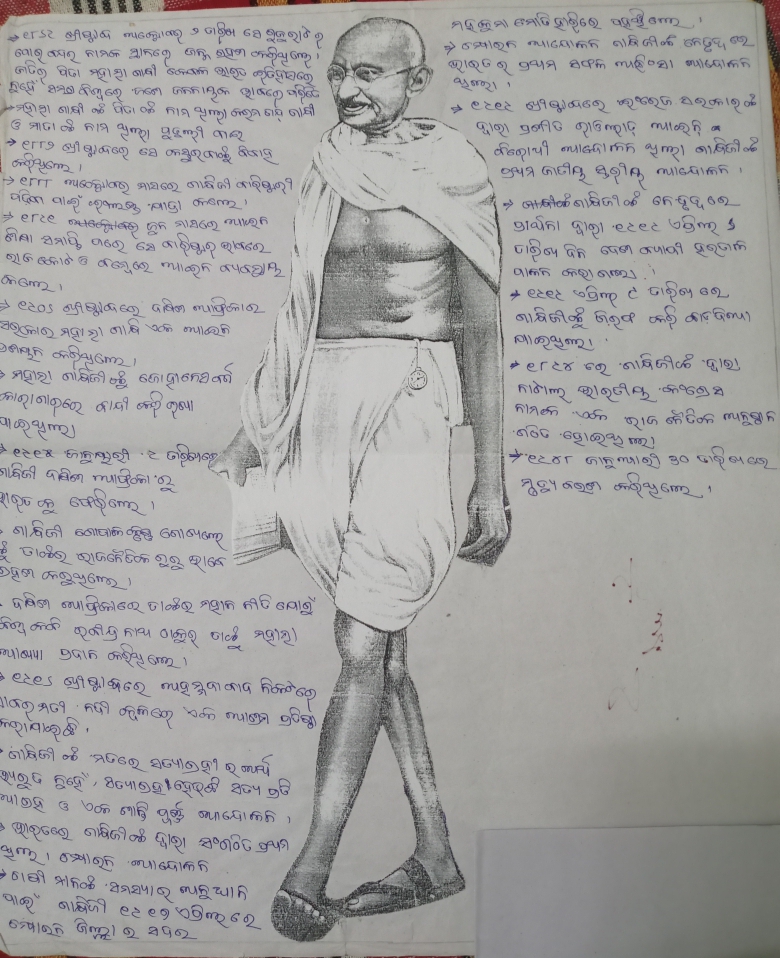 → ୧୮୬୯ ଖ୍ରୀଷ୍ଟାବ୍ଦ ଅକ୍ଟୋବର ୨ ତାରିଖ ରେ ଗୁଜୁରାଟର
ପୋରବନ୍ଦର ନାମକ ସ୍ଥାନରେ ଜନ୍ମ ଗ୍ରହଣ କରିଥିଲେ ।
ଜାତିର ପିତା ମହାତ୍ମା ଗାନ୍ଧୀ କେବଳ ଭାରତ ଇତିହାସରେ
ନୁହେଁ ସମଗ୍ର ବିଶ୍ୱରେ ଜଣେ ଜନନାୟକ ଭାବରେ ପରିଚିତ
→ ମହାତ୍ମା ଗାନ୍ଧୀ ଙ୍କ ପିତା ଙ୍କ ନାମ ଥିଲା କରମ ଚାନ୍ଦ ଗାନ୍ଧୀ
ଓ ମାତା ଙ୍କ ନାମ ଥିଲା ପୁତୁଲୀ ବାଇ
→ ୧୮୮୨ ଖ୍ରୀଷ୍ଟାବ୍ଦରେ ସେ କସ୍ତୁରବାଙ୍କୁ ବିବାହ
କରିଥିଲେ ।
→ ୧୮୮୮ ଅକ୍ଟୋବର ମାସରେ ଗାନ୍ଧିଜୀ ବାରିଷ୍ଟରୀ
ପଢିବା ପାଇଁ ଇଂଲଣ୍ଡ ଯାତ୍ରା କଲେ ।
→ ୧୮୯୧ ଜୁନ ମାସରେ ଆଇନ
ଶିକ୍ଷା ସମାପ୍ତି ପରେ ସେ ବାରିଷ୍ଟର ଭାବରେ
ରାଜକୋଟ ଓ ବମ୍ବେରେ ଆଇନ ବ୍ୟବସାୟ
କଲେ ।
→ ୧୯୦୬ ଖ୍ରୀଷ୍ଟାବ୍ଦରେ ଦକ୍ଷିଣ ଆଫ୍ରିକାର
ସରକାର ମହାତ୍ମା ଗାନ୍ଧି ଏକ ଆଇନ
କରିଥିଲେ ।
→ ମହାତ୍ମା ଗାନ୍ଧିଜୀଙ୍କୁ ଜୋହାନେସବର୍ଗ
କାରାଗାରରେ ବନ୍ଦୀ କରି ରଖା
ଯାଇଥିଲା
→ ୧୯୧୫ ଜାନୁଆରୀ ୯ ତାରିଖରେ
ଗାନ୍ଧିଜୀ ଦକ୍ଷିଣ ଆଫ୍ରିକା ରୁ
ଭାରତ କୁ ଫେରିଲେ ।
ଗାନ୍ଧିଜୀ ଗୋପାଳ କୃଷ୍ଣ ଗୋଖଲେ
ଙ୍କୁ ତାଙ୍କର ରାଜନୈତିକ ଗୁରୁ ଭାବେ
ଗ୍ରହଣ କରୁଥିଲେ ।
ଦକ୍ଷିଣ ଆଫ୍ରିକାରେ ତାଙ୍କର ମହାନ କୀର୍ତି ଯୋଗୁଁ
ବିଶ୍ୱ କବି ରବୀନ୍ଦ୍ର ନାଥ ଠାକୁର ତାଙ୍କୁ ମହାତ୍ମା
ଆଖ୍ୟା ପ୍ରଦାନ କରିଥିଲେ ।
ଖ୍ରୀଷ୍ଟାବ୍ଦରେ ଅହମ୍ମଦାବାଦ ନିକଟରେ
ସାବରମତୀ ନଦୀ କୂଳରେ ଏକ ଆଶ୍ରମ ପ୍ରତିଷ୍ଠା
କରାଯାଇଛି ।
ଗାନ୍ଧିଜୀ ଙ୍କ ମତରେ ସତ୍ୟାଗ୍ରହୀ ର ଅର୍ଥ
ନୁହେଁ , ସତ୍ୟାଗ୍ରହ ହେଉଛି ସତ୍ୟ ପ୍ରତି
ଆଗ୍ରହ ଓ ଏକ ଶାନ୍ତି ପୂର୍ଣ୍ଣ ଆନ୍ଦୋଳନ ।
→ ଭାରତରେ ଗାନ୍ଧିଜୀଙ୍କ ଦ୍ୱାରା ସଂଗଠିତ ପ୍ରଥମ
ଥିଲା ଚମ୍ପାରନ ଆନ୍ଦୋଳନ
→ ଚାଷୀ ମାନଙ୍କ ସମସ୍ୟାର ଅନୁଧ୍ୟାନ
ପାଇଁ ଗାନ୍ଧିଜୀ ୧୯୧୭ ଏପ୍ରିଲ ରେ
ଚମ୍ପାରନ ଜିଲ୍ଲା ର ସଦର
ମହକୁମା ମୋତିହାରିରେ ପହଞ୍ଚିଲେ ।
→ ଚମ୍ପାରନ ଆନ୍ଦୋଳନ ଗାନ୍ଧିଜୀଙ୍କ ନେତୃତ୍ୱରେ
ଭାରତ ର ପ୍ରଥମ ସଫଳ ଅହିଂସା ଆନ୍ଦୋଳନ
ଥିଲା ।
→ ୧୯୧୯ ଖ୍ରୀଷ୍ଟାବ୍ଦରେ ଇଂରେଜ ସରକାରଙ୍କ
ଦ୍ୱାରା ପ୍ରଣୀତ ରାଓଲାଟ ଆଇନ
ବିରୋଧୀ ଆନ୍ଦୋଳନ ଥିଲା ଗାନ୍ଧିଜୀଙ୍କ
ପ୍ରଥମ ଜାତୀୟ ସ୍ତରୀୟ ଆନ୍ଦୋଳନ ।
→ ଗାନ୍ଧିଜୀ ଙ୍କ ନେତୃତ୍ୱରେ
ପ୍ରାର୍ଥନା ଦ୍ୱାରା ୧୯୧୯ ଏପ୍ରିଲ ୬
ତାରିଖ ଦିନ ଦେଶ ବ୍ୟାପୀ ହରତାଳ
ପାଳନ କରାଗଲା ।
→ ୧୯୧୯ ଏପ୍ରିଲ ୯ ତାରିଖ ରେ
ଗାନ୍ଧିଜୀଙ୍କୁ ଗିରଫ କରି ଦିଆ
ଯାଇଥିଲା ।
→ ୧୮୯୪ ରେ ଗାନ୍ଧିଜୀଙ୍କ ଦ୍ୱାରା
ନାଟାଲ ଭାରତୀୟ କଂଗ୍ରେସ
ନାମକ ଏକ ରାଜନୈତିକ ଅନୁଷ୍ଠାନ
ଗଠିତ ହୋଇଥିଲା
→ ୧୯୪୮ ଜାନୁଆରୀ ୩୦ ତାରିଖରେ
ମୃତ୍ୟୁ ବରଣ କରିଥିଲେ ।